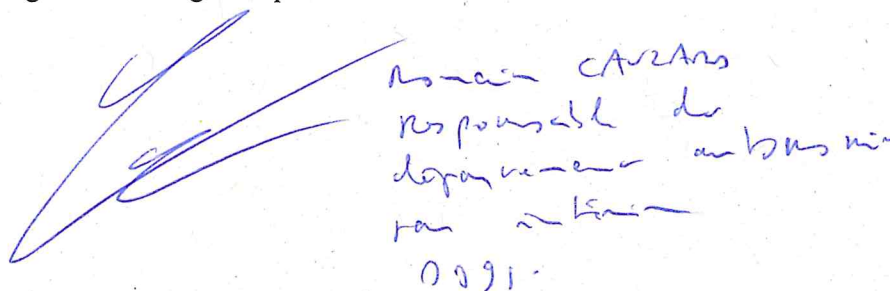 Romain CAUZARD
Responsable du
département autonomie
par intérim
DD91.